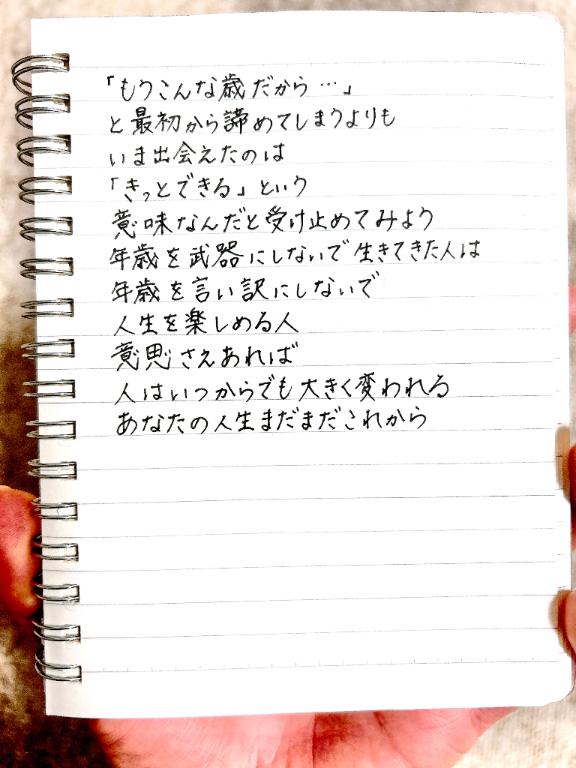 「もうこんな歳だから…」
と最初から諦めてしまうよりも
いま出会えたのは
「きっとできる」という
意味なんだと受け止めてみよう
年歳を武器にしないで生きてきた人は
年歳を言い訳にしないで
人生を楽しめる人
意思さえあれば
人はいつからでも大きく変われる
あなたの人生まだまだこれから